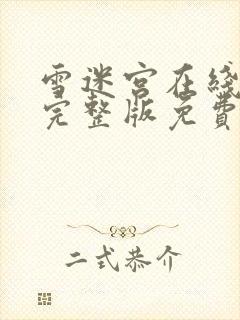 雪迷宫在线
完整版免費
二式恭介